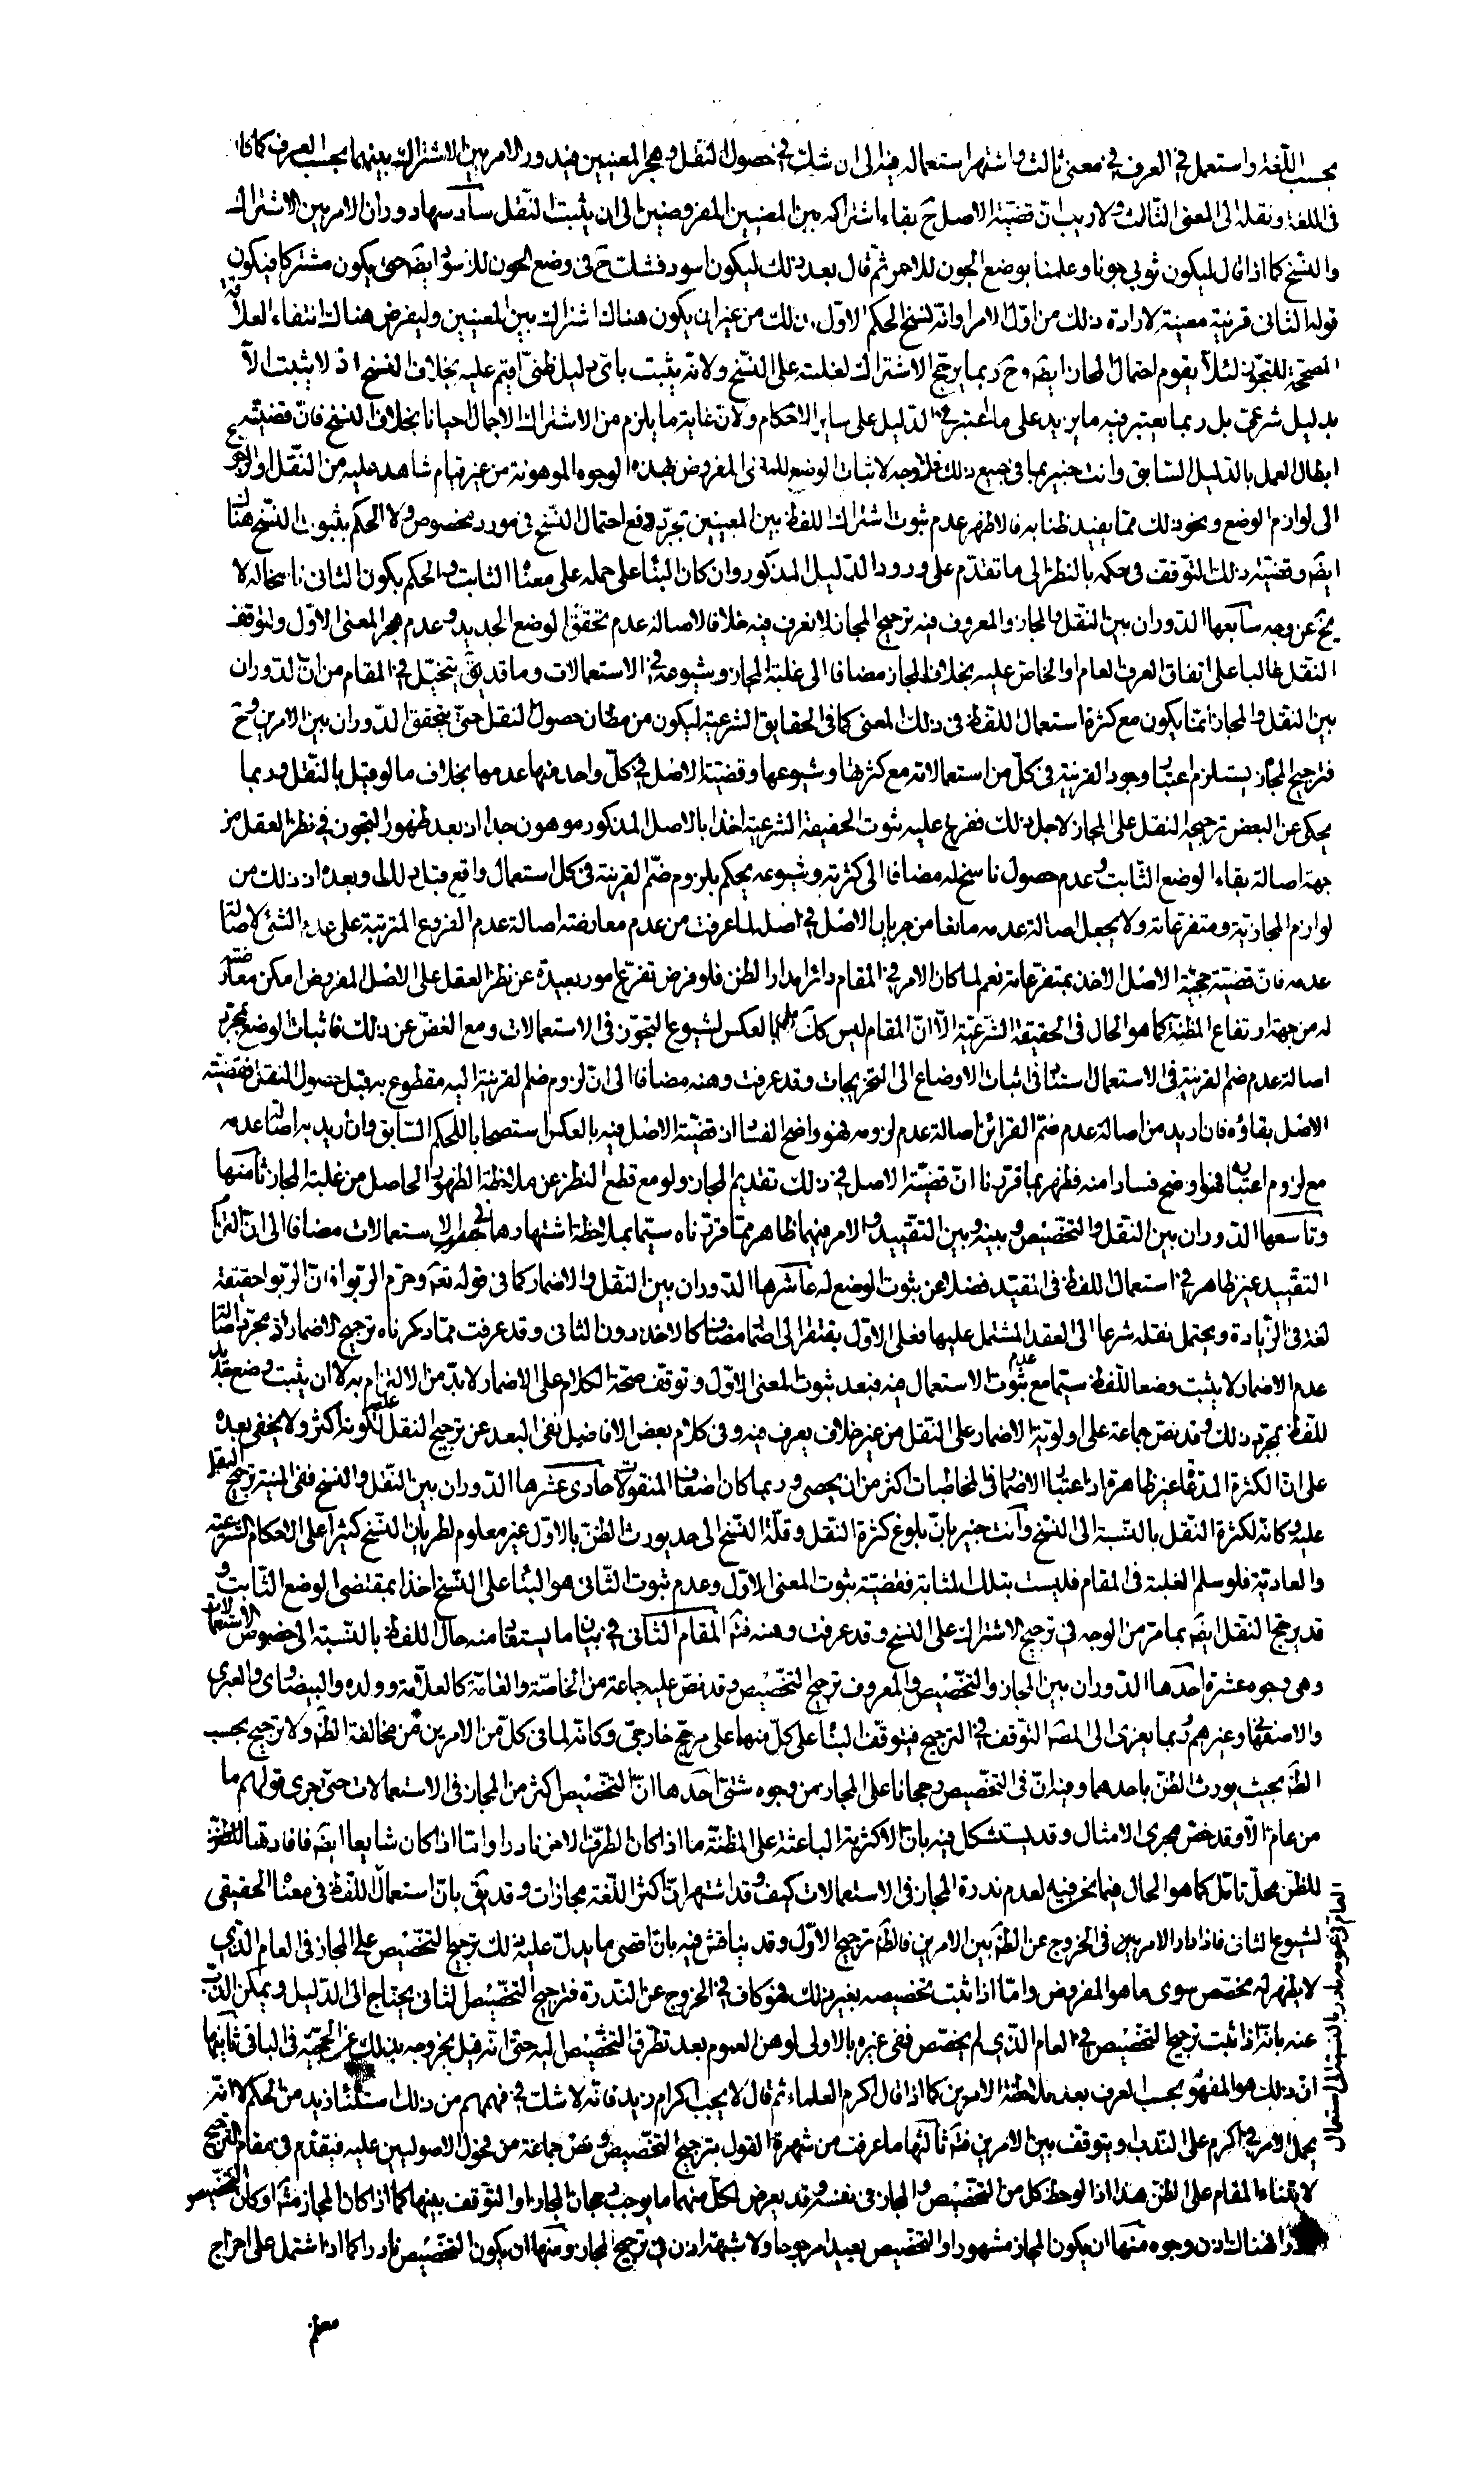 بحسب اللّغة واستعمل في العرف في معنى ثالث واشتهر استعماله فيه الى ان شك في حصول النقل وهجر المعنيين فيدور الامر بين الاشتراك بينهما بحسب العرف كما كان
في اللغة ونقله الى المعنى الثّالث ولا ريب انّ قضيّة الاصل ح بقاء اشتراكه بين المعنيين المفروضين الى ان يثبت النّقل سادسها دوران الامر بين الاشتراك
والنسخ كما اذا قال ليكون ثوبي جونا وعلمنا بوضع الجون للاحمر ثمّ قال بعد ذلك ليكون اسود فشك ح في وضع الجون للاسود ايضَ حتى يكون مشتركا فيكون
قوله الثاني قرينة معينة لارادة ذلك من اوّل الامر او انّه نسخ الحكم الاوّل بذلك من غير ان يكون هناك اشتراك بين المعنيين وليفرض هناك انتفاء العلاقة
المصحّحة للتجوّز لئلّا يقوم احتمال المجاز ايضَ وح ربما يرجّح الاشتراك لغلبته على النسخ ولانّه يثبت باىّ دليل ظنّى اقيم عليه بخلاف النسخ اذ لا يثبت الّا
بدليل شرعىّ بل ربما يعتبر فيه ما يزيد على ما اعتبر في الدّليل على ساير الاحكام ولانّ غاية ما يلزم من الاشتراك الاجمال احيانا بخلاف النسخ فانّ قضيّته
ابطال العمل بالدّليل السّابق وانت خبير بما في جميع ذلك فلا وجه لاثبات الوضع للمعنى المفروض بهذه الوجوه الموهونة من غير قيام شاهد عليه من النّقل او الرّجوع
الى لوازم الوضع ونحو ذلك ممّا يفيد ظنا به فالاظهر عدم ثبوت اشتراك اللفظ بين المعينين بمجرّد دفع احتمال النّسخ في مورد مخصوص ولا الحكم بثبوت النّسخ هناك
ايضَ وقضيّة ذلك التّوقف في حكمه بالنظر الى ما تقدّم على ورود الدّليل المذكور وان كان البناء على حمله على معناه الثابت والحكم بكون الثانى ناسخا له لا
يخ عن وجه سابعها الدّوران بين النقل والمجاز والمعروف فيه ترجيح المجاز لا نعرف فيه خلافا لاصالة عدم تحقق الوضع الجديد وعدم هجر المعنى الاوّل ولتوقف
النّقل غالبا على اتفاق العرف العام او الخاص عليه بخلاف المجاز مضافا الى غلبة المجاز وشيوعه في الاستعمالات وما قد يتخيّل في المقام من انّ الدّوران
بين النقل والمجاز انّما يكون مع كثرة استعمال اللفظ في ذلك المعنى كما في الحقايق الشرعية ليكون من مظان حصول النقل حتىّ يتحقق الدّوران بين الامرين وح
فترجيح المجاز يستلزم اعتبار وجود القرينة في كلّ من استعمالاته مع كثرتها وشيوعها وقضيّة الاصل في كلّ واحد منها عدمها بخلاف ما لو قيل بالنّقل وربما
يحكى عن البعض ترجيحه النقل على المجاز لاجل ذلك ففرع عليه ثبوت الحقيقة الشرعية اخذا بالاصل المذكور موهون جدا اذ بعد ظهور التجوز في نظر العقل من
جهة اصالة بقاء الوضع الثّابت وعدم حصول ناسخ له مضافا الى كثرته وشيوعه يحكم بلزوم ضمّ القرينة في كل استعمال واقع قبل ذلك وبعده اذ ذلك من
لوازم المجازيّة ومتفرعاته ولا يجعل اصالة عدمه مانعا من جريان الاصل في اصله لما عرفت من عدم معارضة اصالة عدم الفروع المترتبة على عدم الشئ لاصالة
عدمه فانّ قضيّة حجيّة الاصل الاخذ بمتفرّعاته نعم لما كان الامر في المقام دائرا مدار الظن فلو فرض تفرّع امور بعيدة عن نظر العقل على الاصل المفروض امكن معارضته
له من جهة ارتفاع المظنّة كما هو الحال في الحقيقة الشّرعيّة الّا انّ المقام ليس كك بالعكس لشيوع التجوّز في الاستعمالات ومع الغضّ عن ذلك فاثبات الوضع بمجرّد
اصالة عدم ضم القرينة في الاستعمال استناد في اثبات الاوضاع الى التخريجات وقد عرفت وهنه مضافا الى انّ لزوم ضم القرينة اليه مقطوع به قبل حصول النقل فقضيّته
الاصل بقاؤه فان اريد من اصالة عدم ضمّ القرائن اصالة عدم لزومه فهو واضح الفساد اذ قضيّة الاصل فيه بالعكس استصحابا للحكم السّابق وان اريد به اصالة عدمه
مع لزوم اعتباره فهو اوضح فسادا منه فظهر بما قرّرنا انّ قضيّة الاصل في ذلك تقديم المجاز ولو مع قطع النظر عن ملاحظة الظهور الحاصل من غلبة المجاز ثامنها
وتاسعها الدّوران بين النّقل والتخصيص وبينه وبين التقييد والامر فيهما ظاهر ممّا قرّرناه سيّما بملاحظة اشتهارهما في الاستعمالات مضافا الى انّ التزام
التقييد غير ظاهر في استعمال اللفظ في المقيّد فضلا عن ثبوت الوضع له عاشرها الدّوران بين النّقل والاضمار كما في قوله تعَ وحرّم الرّبوا فانّ الرّبوا حقيقة
لغة في الزّيادة ويحتمل نقله شرعا الى العقد المشتمل عليها فعلى الاوّل يفتقر الى اضمار مضاف كالاخذ دون الثاني وقد عرفت ممّا ذكرناه ترجيح الاضمار اذ مجرّد اصالة
عدم الاضمار لا يثبت وضعا للّفظ سيّما مع عدم ثبوت الاستعمال فيه فبعد ثبوت المعنى الاوّل وتوقّف صحّة الكلام على الاضمار لا بدّ من الالتزام به لا ان يثبت وضع جديد
للفظ بمجرّد ذلك وقد نصّ جماعة على اولويّة الاضمار على النّقل من غير خلاف يعرف فيه وفى كلام بعض الافاضل نفى البعد عن ترجيح النقل عليه لكونه اكثر ولا يخفى بعده
على انّ الكثرة المدّعاة غير ظاهرة اذ اعتبار الاضمار في المخاطبات اكثر من ان يحصى وربما كان اضعاف المنقولات حادى عشرها الدّوران بين النّقل والنسخ ففى المنية ترجيح النقل
عليه وكانّه لكثرة النّقل بالنّسبة الى النّسخ وانت خبير بانّ بلوغ كثرة النقل وقلّة النّسخ الى حد يورث الظنّ بالاوّل غير معلوم لطريان النّسخ كثيرا على الاحكام الشّرعيّة
والعاديّة فلو سلم الغلبة في المقام فليست بتلك المثابة فقضيّة ثبوت المعنى الاوّل وعدم ثبوت الثّانى هو البناء على النّسخ اخذا بمقتضى الوضع الثّابت و
قد يرجح النقل ايضَ بما مرّ من الوجه في ترجيح الاشتراك على النسخ وقد عرفت وهنه فتمّ المقام الثّانى في بيان ما يستفاد منه حال اللفظ بالنّسبة الى خصوص الاستعمالات
وهى وجوه عشرة احدها الدّوران بين المجاز والتخصيص والمعروف ترجيح التخصيص وقد نصّ عليه جماعة من الخاصّة والعامّة كالعلّامة وولده والبيضاوى والعبرى
والاصفهانى وغيرهم وربما يعزى الى المصَ التّوقف في التّرجيح فيتوقّف البناء على كلّ منهما على مرجّح خارجىّ وكانّه لما في كلّ من الامرين من مخالفة الظَ ولا ترجيح بحسب
الظَ بحيث يورث الظنّ باحدهما وفيه انّ في التخصيص رجحانا على المجاز من وجوه شتىّ احدها انّ التخصيص اكثر من المجاز في الاستعمالات حتى جرى قولهم ما
من عام الّا وقد خصّ مجرى الامثال وقد يستشكل فيه بانّ الاكثرية الباعثة على المظنّة ما اذا كان الطرف الاخر نادرا وامّا اذا كان شايعا ايضَ فافادتها
للظنّ محلّ تامّل كما هو الحال فيما نحن فيه لعدم ندرة المجاز في الاستعمالات كيف وقد اشتهر انّ اكثر اللّغة مجازات وقد يقَ بانّ استعمال اللّفظ في معناه الحقيقى
العام نادر بالنسبة الى استعمال
لشيوع الثانى فاذا دار الامر بين في الخروج عن الظَ بين الامرين فالظَ ترجيح الاوّل وقد يناقش فيه بانّ اقصى ما يدلّ عليه ذلك ترجيح التخصيص على المجاز في العام الّذى
لا يظهر له مخصّص سوى ما هو المفروض وامّا اذا ثبت تخصيصه بغير ذلك فهو كاف في الخروج عن النّدرة فترجيح التخصيص الثانى يحتاج الى الدّليل ويمكن الذّب
عنه بانّه اذا ثبت ترجيح التخصيص في العام الّذى لم يخصّص ففى غيره بالاولى لوهن العموم بعد تطرّق التخصيص اليه حتى انّه قيل بخروجه بذلك عن الحجيّة في الباقى ثانيها
انّ ذلك هو المفهوم بحسب العرف بعد ملاحظة الامرين كما اذا قال اكرم العلماء ثم قال لا يجب اكرام زيد فانّه لا شك في فهمهم من ذلك استثناء زيد من الحكم لا انّه
يحمل الامر في اكرم على النّدب او يتوقف بين الامرين فتمّ ثالثها ما عرفت من شهرة القول بترجيح التخصيص ونصّ جماعة من فحول الاصوليين عليه فيقدّم في مقام الترجيح
لابتناء المقام على الظن هذا اذا لوحظ كل من التخصيص والمجاز في نفسه وقد يعرض لكلّ منهما ما يوجب رجحان المجاز او التّوقف بينهما كما اذا كان المجاز مشهورا او كان التخصيص
هناك اذن وجوه منها ان يكون المجاز مشهورا والتخصيص بعيدا مرجوحا ولا شبهة اذن في ترجيح المجاز ومنها ان يكون التخصيص نادرا كما اذا اشتمل على اخراج
معظم